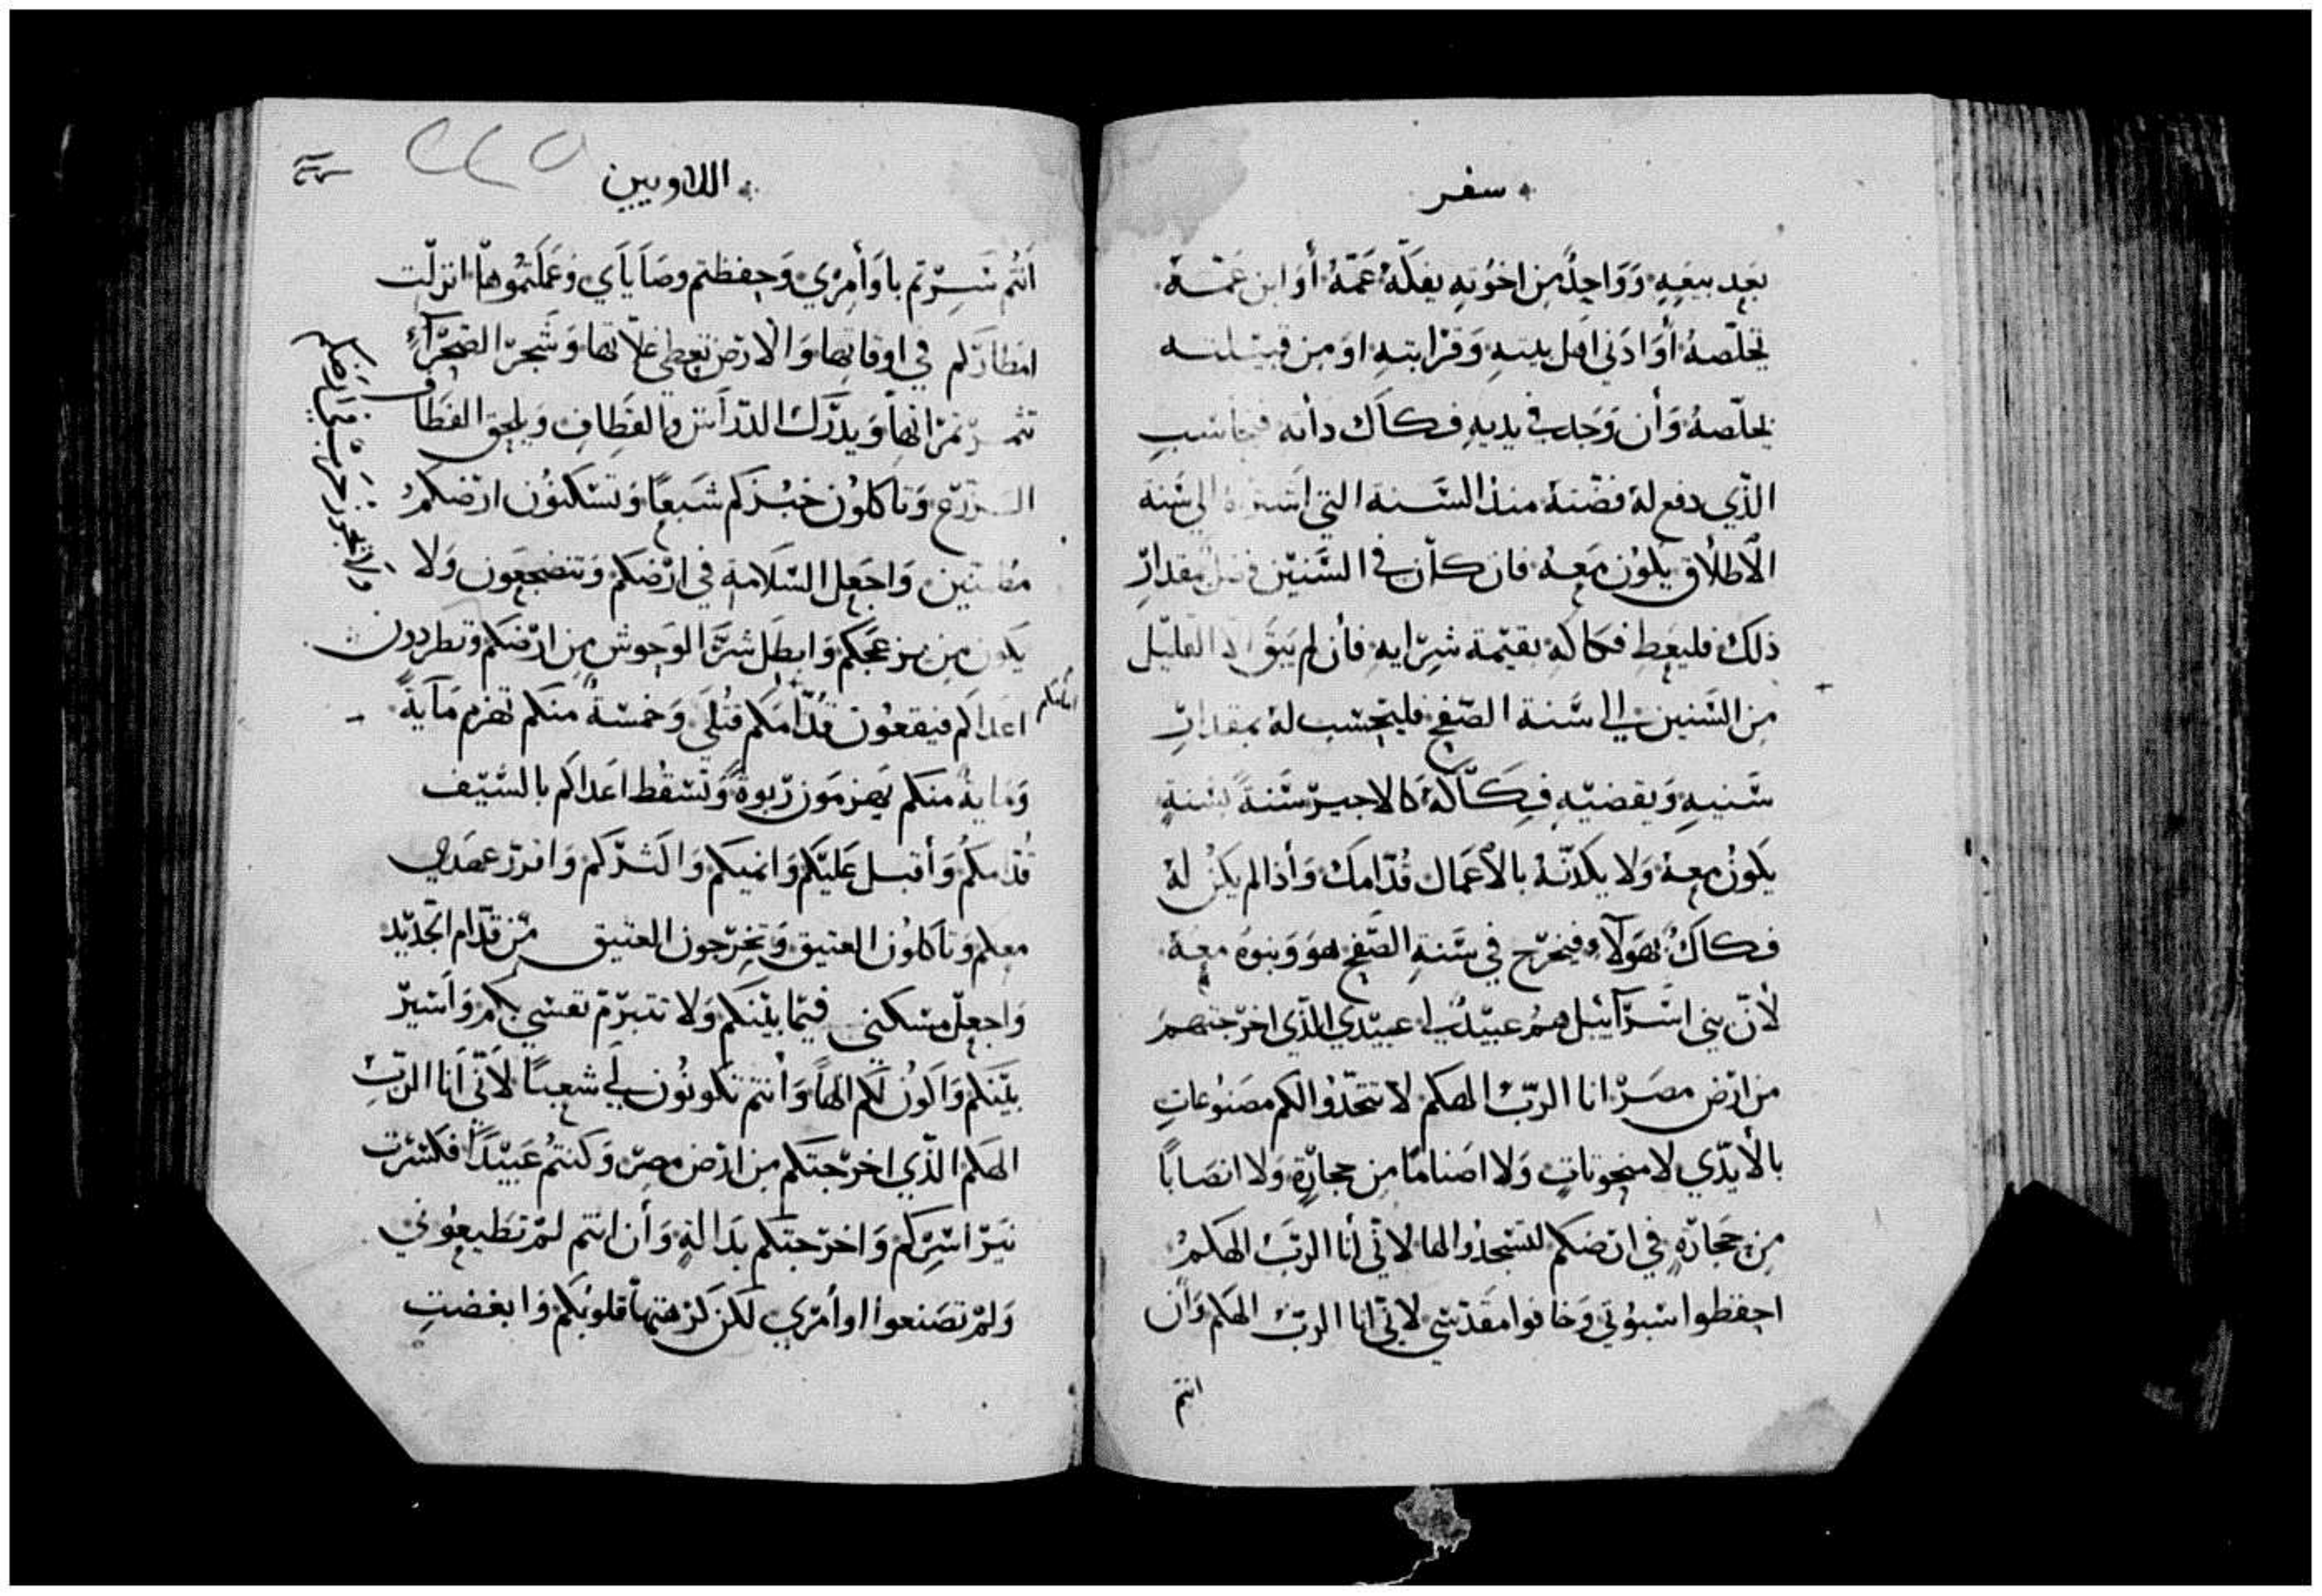 سفر
بعد بيعه وواحدًا من اخوته يفكّه عمّه أو ابن عمّه
يخلّصه أو ادنى اهل بيته وقرابته او من قبيلته
يخلّصه وأن وجد في يديه فكاك ذاته فيحاسب
الذّي دفع له فضّته منذ السّنة التي اشتراه الي سنة
الأطلاق يكون معه فان كان في السّنين فضل مقدار
ذلك فليعط فكاكه بقيمة شرايه فأن لم يبق الا القليل
من السّنين الى سّنة الصّفح فليحسب له بمقدار
سّنيه ويقضيه فكاكه كالاجير سّنة بسّنة
يكون معه ولا يكدّنه بالأعمال قدّامك وأذا لم يكن له
فكاك بهولآء فيخرج في سّنة الصّفح هو وبنوه معه
لأنّ بني اسّرآييل هم عبيد لي عبيدي الذي اخرجتهم
من ارض مصر انا الرّب الهكم لا تتخذوا لكم مصنوعات
بالأيدّي لا منحوتات ولا اصنامًا من حجارة ولا انصابًا
من حجارة في ارضكم لتسّجدوا لها لاني أنا الرّب الهكم
احفظوا سّبوتي وخافوا مقدسّي لاني انا الرّب الهكم وأن
انتم
اللاويين
أنتم سّرتم باوأمري وحفظتم وصاياي وعملتموها انزلت
امطاركم في اوقاتها والارض تعطي غلاتها وشجر الصّحرآء
تثمر ثمراتها ويدرك الدّراس بالقطاف ويلحق القطاف
الزرع وتاكلون خبزكم شبعًا وتسّكنون ارضكم
مطمنين واجعل السّلامة في ارضكم وتنضجعون ولا
يكون من يزعجكم وابطل شرّ الوحوش من ارضكم وتطردون
اعداكم فيقعون قدّامكم قتلى وخمسّة منكم تهزم ماية
وماية منكم يهزمون ربوة وتسّقط اعداكم بالسّيف
قدامكم وأقبل عليكم وانميكم واكثركم وافرز عهدي
معكم وتاكلون العتيق وتخرجون العتيق من قدّام الجديد
واجعل مسّكني فيما بينكم ولا تتبرّم نفسّي بكم وأسير
بينكم وأكون لكم الهاً وأنتم تكونون لي شعبًا لأنّي أنا الرّب
الهكم الذّي اخرجتكم من ارض مصر وكنتم عبيدًا فكسّرت
نير اسّركم واخرجتكم بدالة وأن انتم لم تطيعوني
ولم تصنعوا اوأمري لكن كرهتها قلوبكم وابغضت